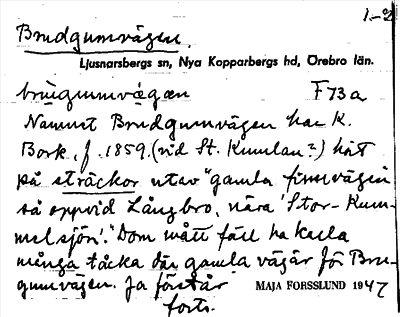 1-2
Brudgumvägen.
Ljusnarsbergs sn, Nya Kopparbergs hd, Örebro län.
F 73 a
Namnet Brudgumvägen har K.
Bork, f. 1859, (vid St. Kumlan?) hört
på sträckor utav "gamla finnvägen
så oppvid Långbro, nära 'Stor-Kum-
melsjön'." Dom mått fäll ha kalla
många tåcka där gamla vägär för Bru-
gumvägen. Ja förstår
forts.
MAJA FORSSLUND 1947